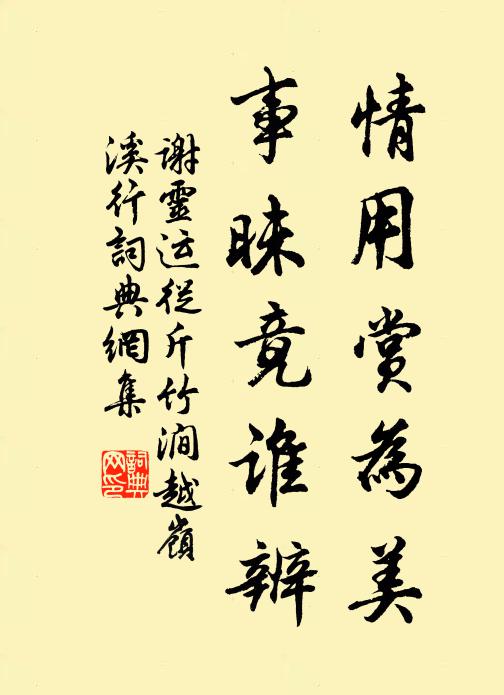 情用賞為美
事昧竟誰辨
謝靈运從斤竹澗越嶺
溪行詞典網集
詞典网印